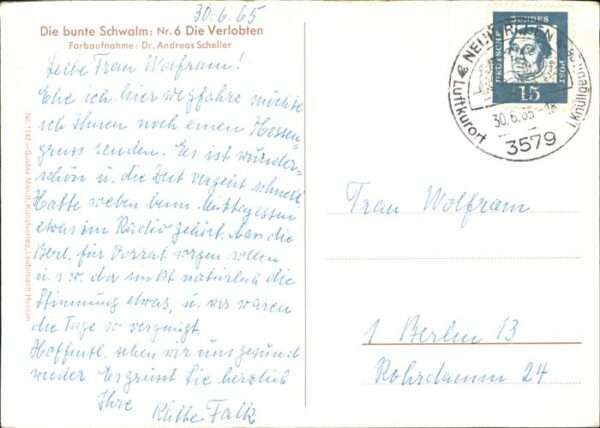 30.6.65
Die bunte Schwalm: Nr. 6 Die Verlobten
Farbaufnahme: Dr. Andreas Scheller
Liebe Frau Wolfram!
Ehe ich hier wegfahre möchte
ich Ihnen noch einen Hessen-
gruss senden. Es ist wunder-
schön u. die Zeit vergeht schnell
Hatte eben beim Mittagessen
etwas im Radio gehört, dass die
Berl. für Vorrat sorgen sollen
u s w. da sinkt natürlich die
Stimmung etwas, u. wir waren
die Tage so vergnügt.
Hoffentl. sehen wir uns gesund
wieder Es grüsst Sie herzlich
Ihre Käthe Falk
DEUTSCHE BUNDESPOST
15
NEUKIRCHEN
Luftkurort
30.6.65-18
3579
Frau Wolfram
1 Berlin 13
Rohrdamm 24